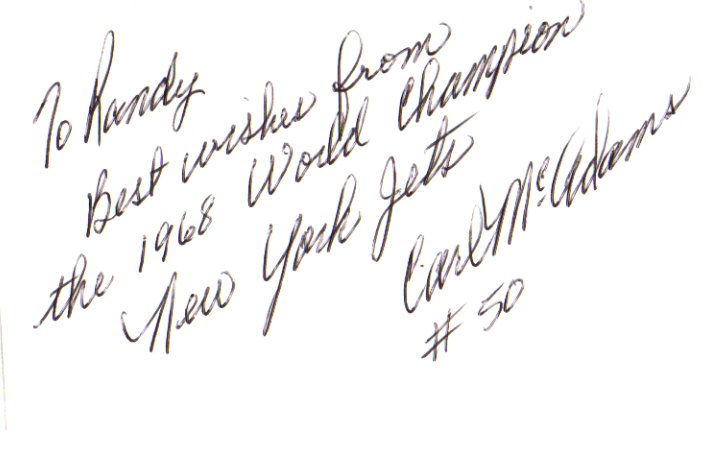 To Randy
Best wishes from
the 1968 World Champion
New York Jets
Carl McAdams
# 50